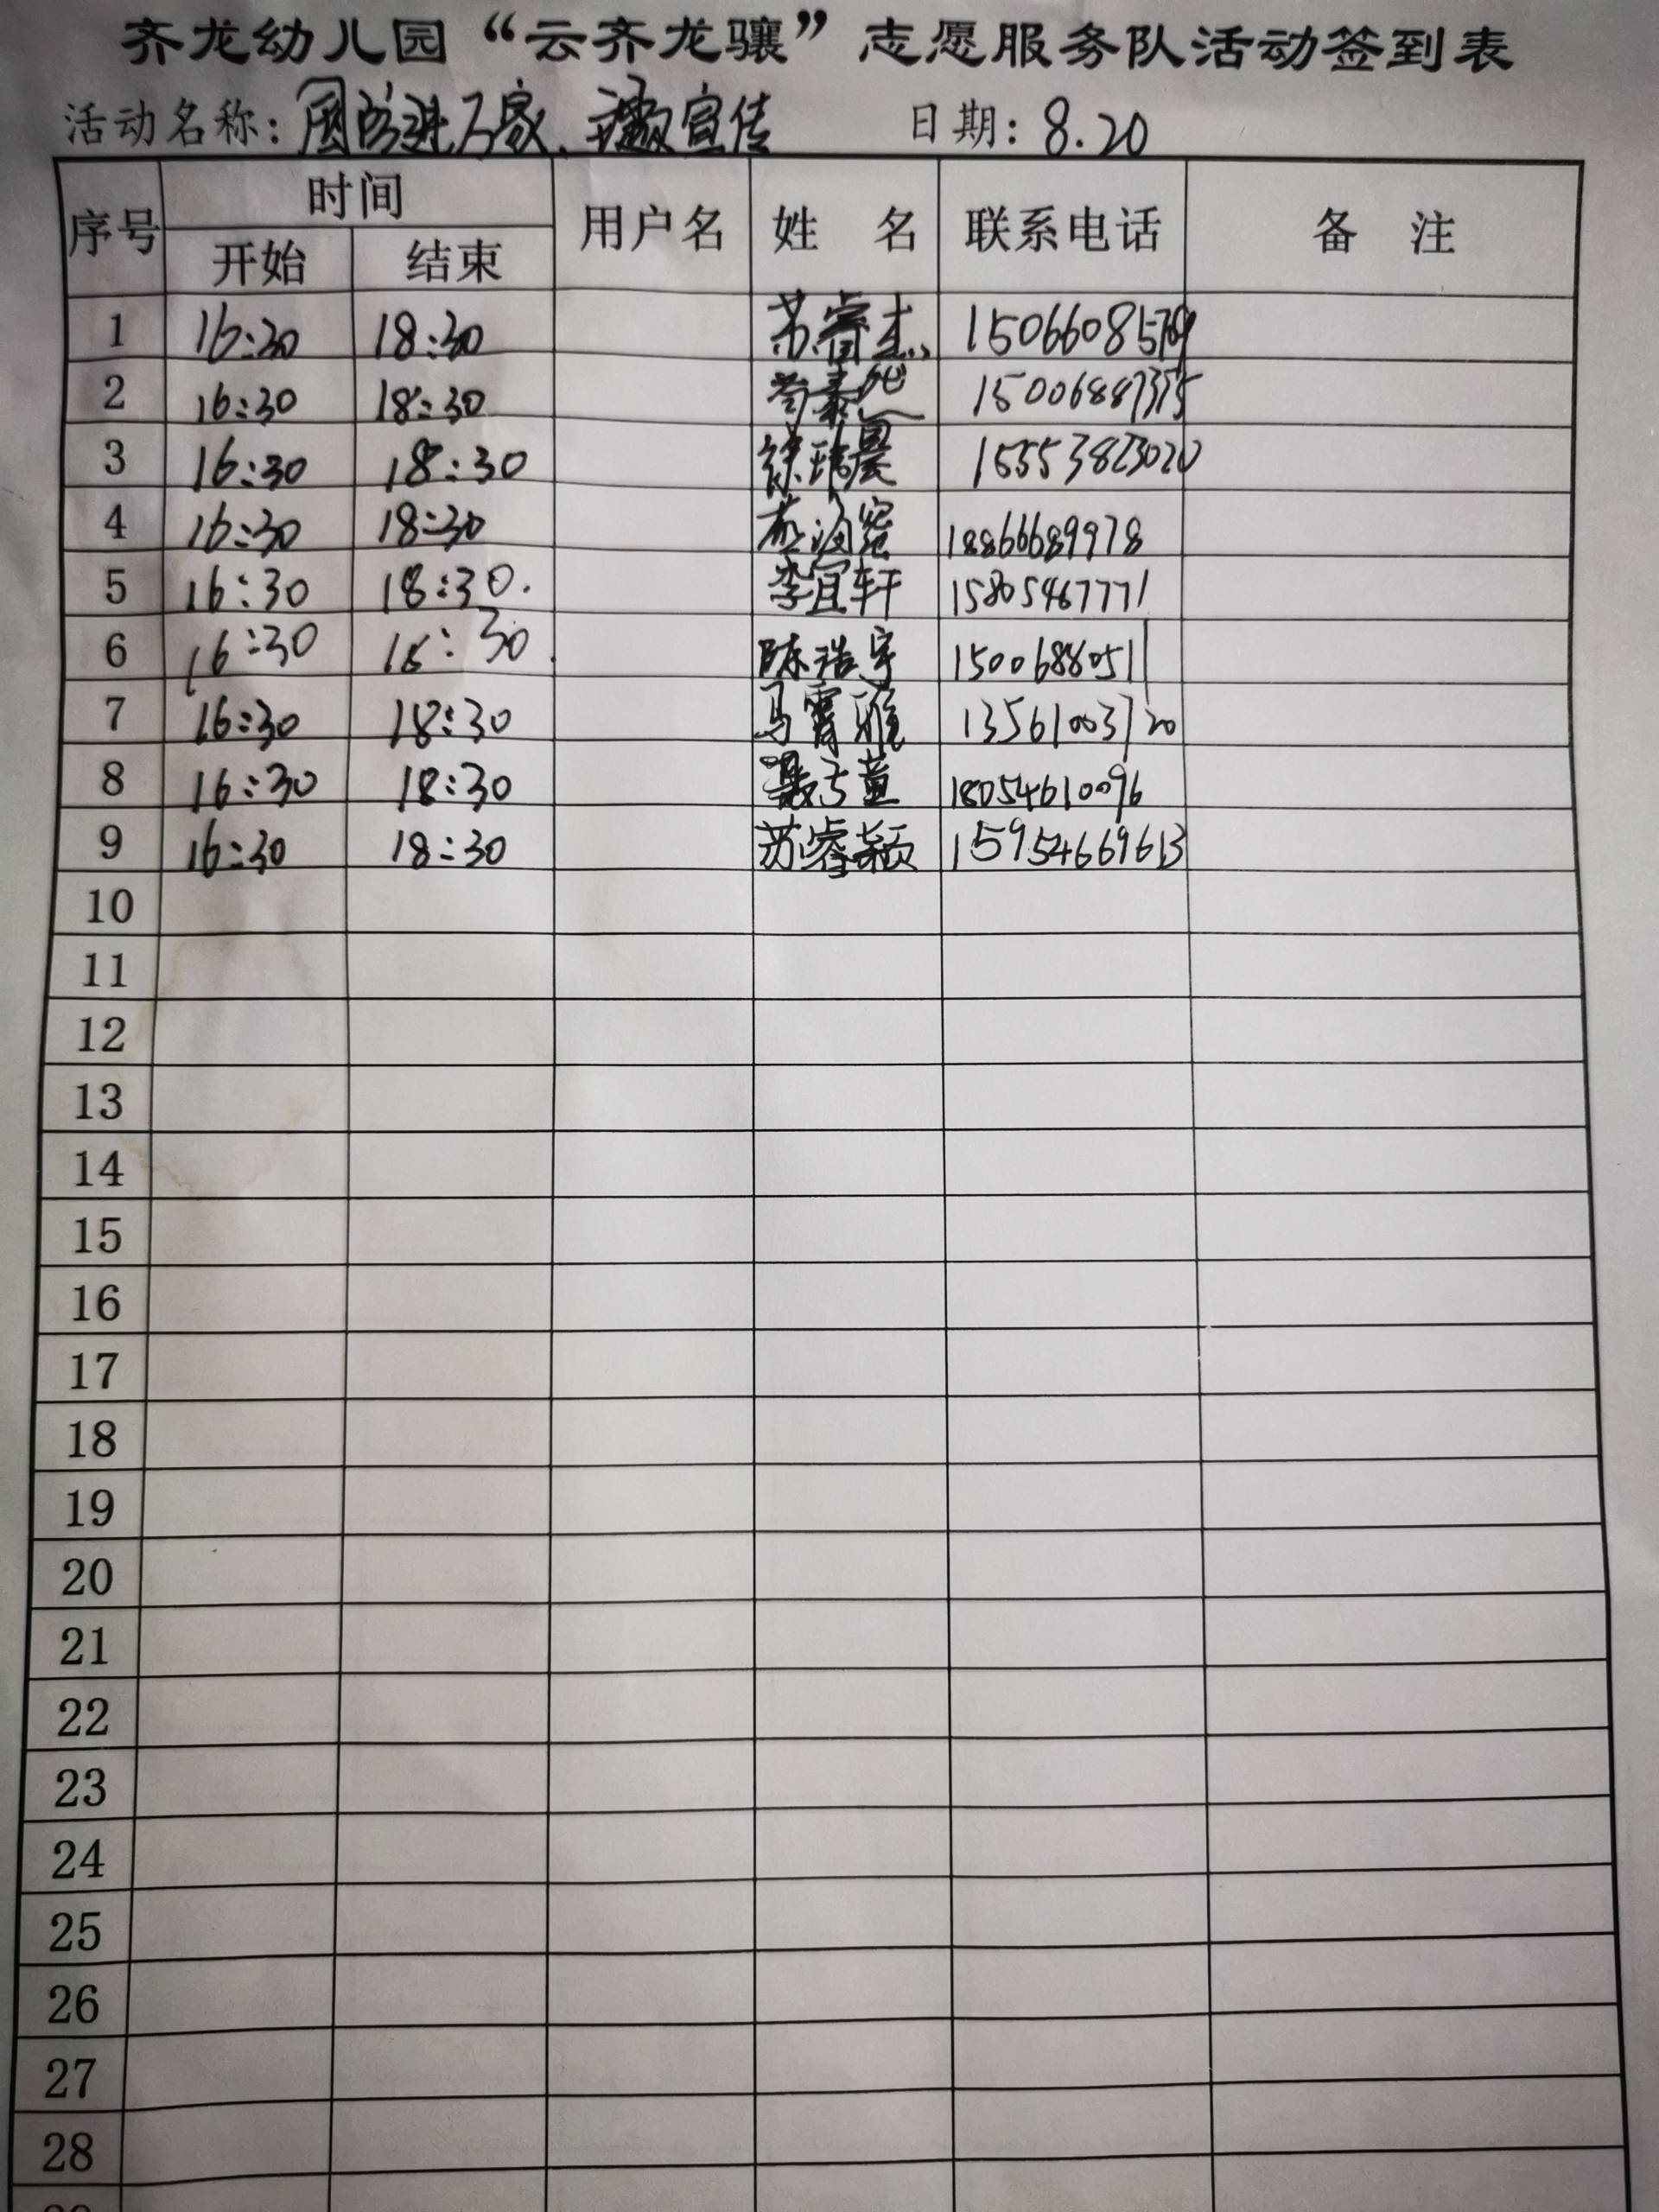 齐龙幼儿园“云齐龙骧”志愿服务队活动签到表
活动名称：国防进万家、宣传 日期：8.20
序号 时间 用户名 姓 名 联系电话 备 注
开始 结束
1 16:30 18:30 苏睿杰
2 16:30 18:30 15006887375
3 16:30 18:30 徐玮晨 15553823020
4 16:30 18:30 18866689978
5 16:30 18:30. 李宜轩 15805467771
6 16:30 18:30. 陈浩宇 15006888511
7 16:30 18:30 马霄雅 13561003120
8 16:30 18:30 聂子萱 18054610096
9 16:30 18:30 苏睿颖 15954669613
10
11
12
13
14
15
16
17
18
19
20
21
22
23
24
25
26
27
28